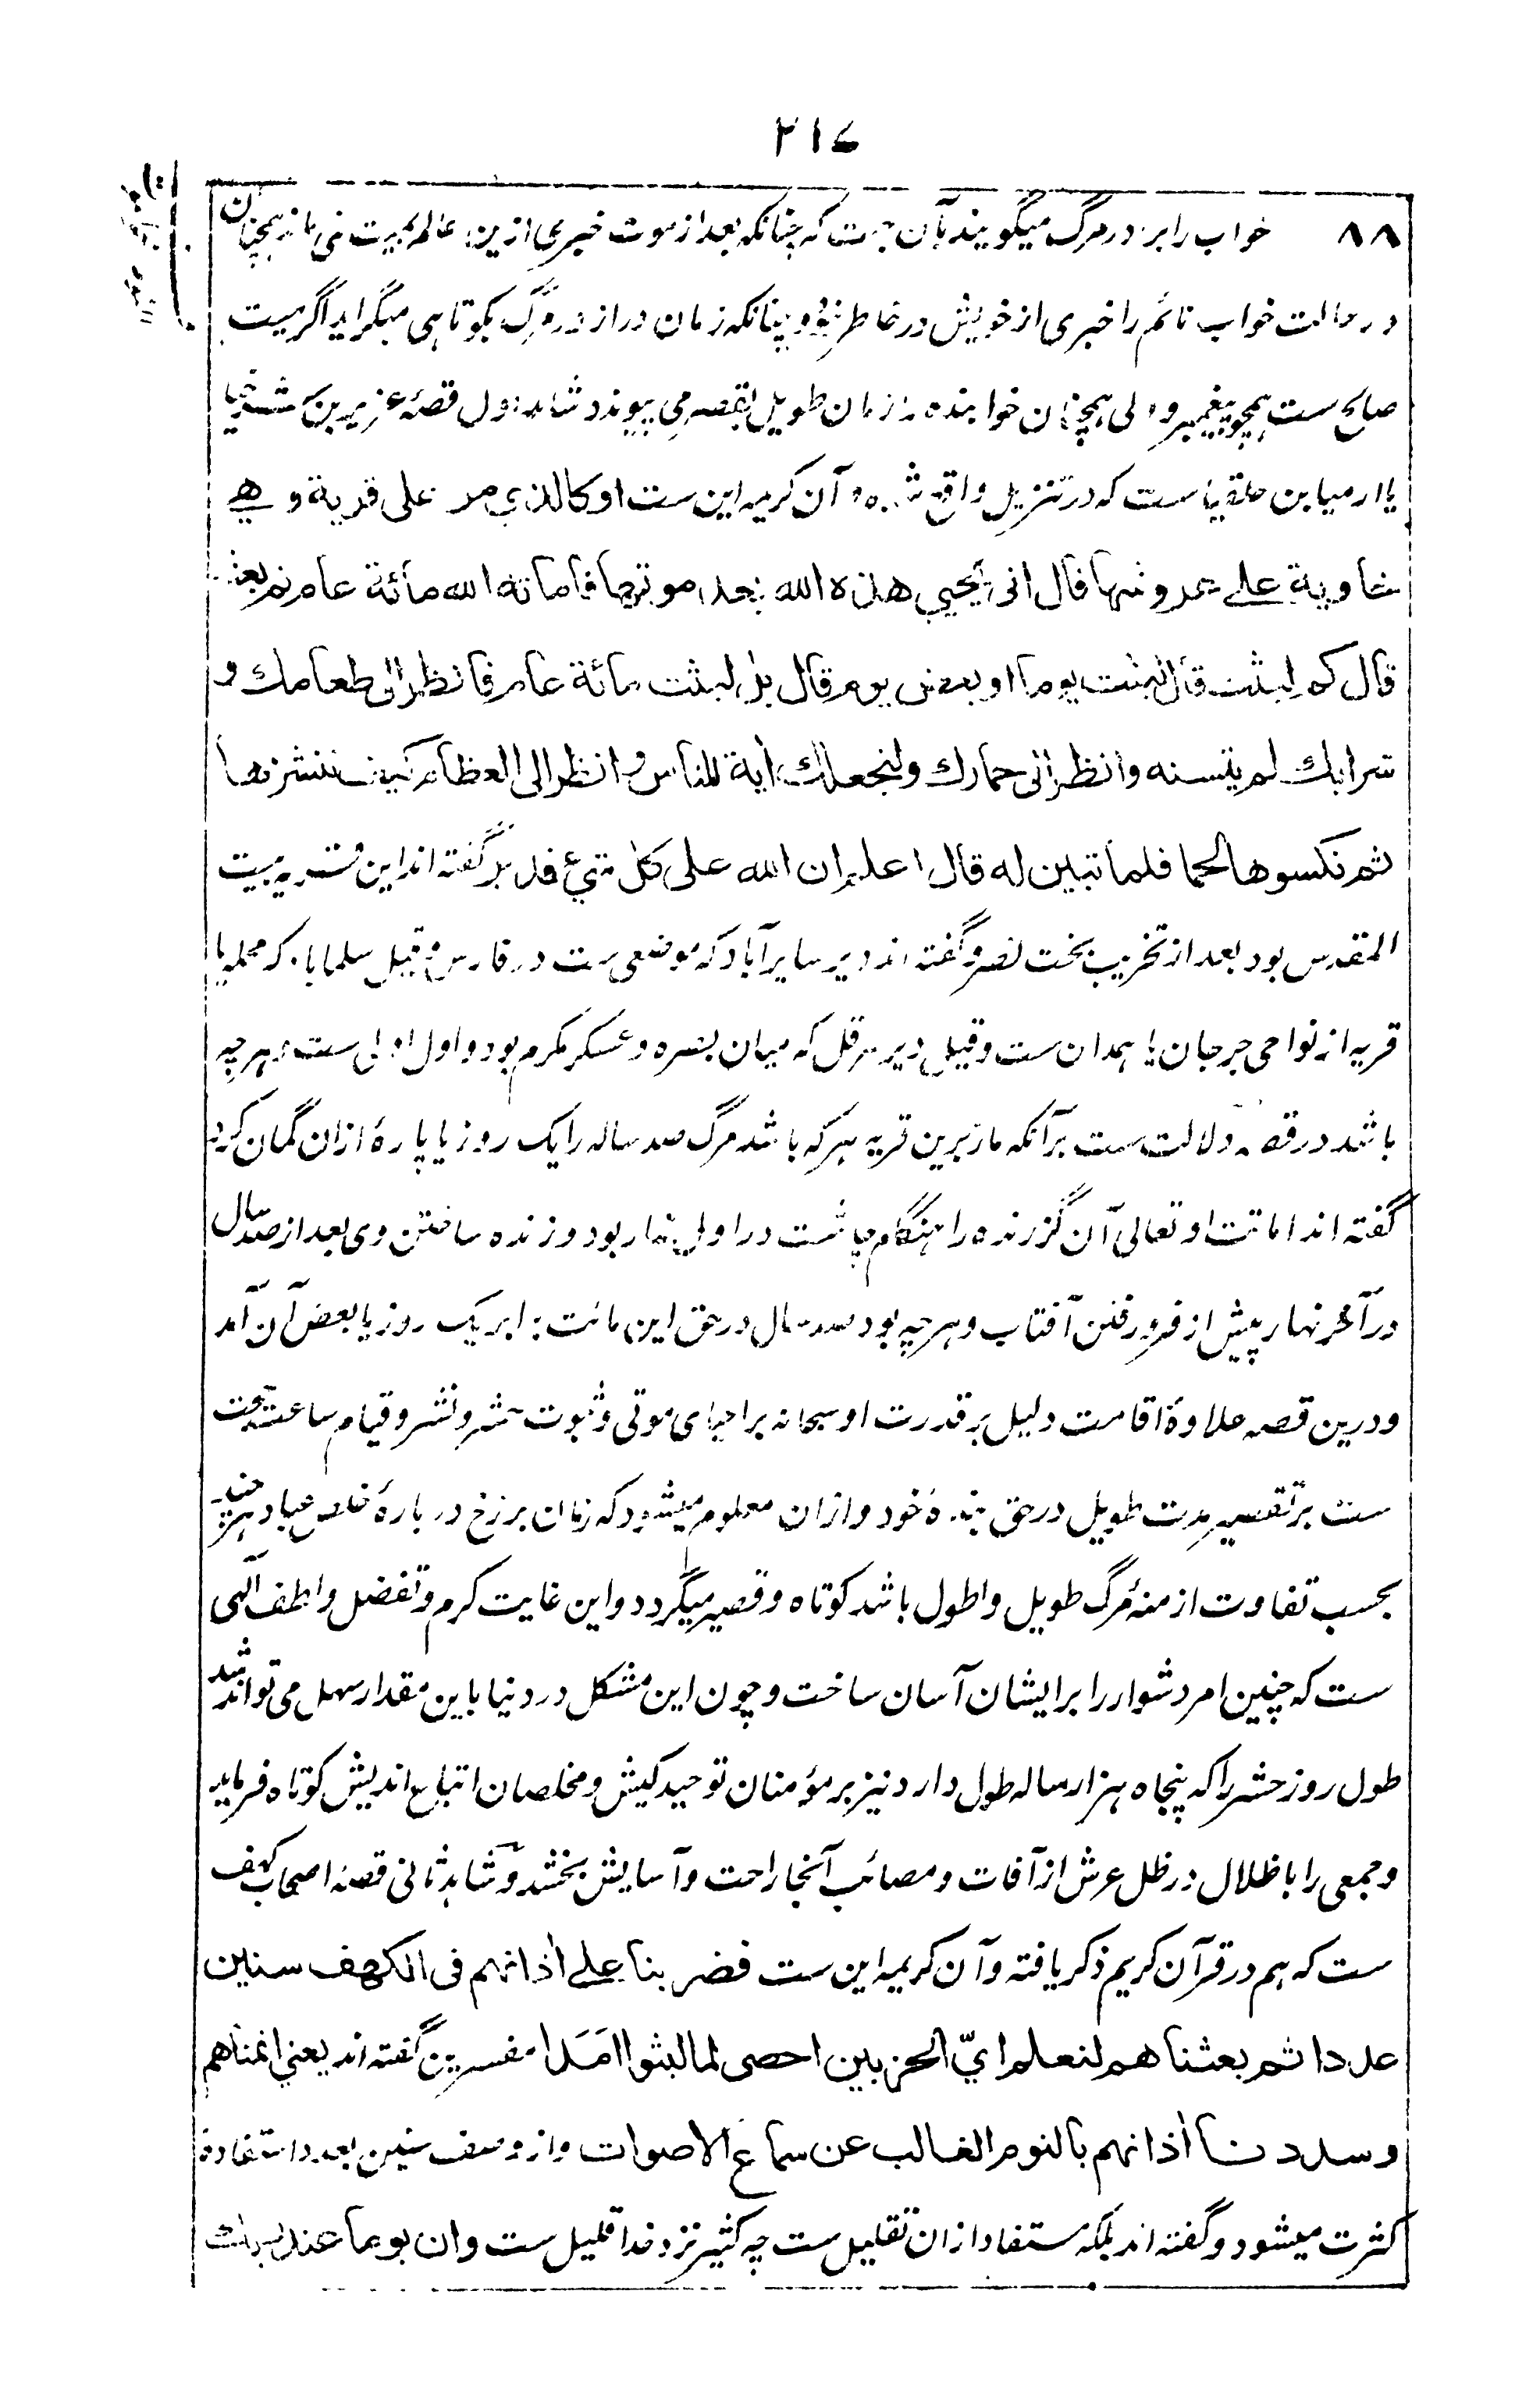 ۲۱۷
۸۸ خواب را برادر مرگ میگویند بآن جهت که چنانکه بعد از موت خبری ازین عالم بمیت نمی ماند همچنان
در حالت خواب نائم را خبری از خویش در خاطر نبود و چنانکه زمان دراز در مرگ بکوتاهی میگراید اگر میت
صالح ست همچو پیغمبر و ولی همچنان خوابنده را زمان طویل بقصر می پیوندد شاهد اول قصهٔ عزیر بن شرخیا
یا ارمیا بن حلقیا ست که در تنزیل واقع شده و آن کریمه این ست او کالذی مر علی قریة و هی
خاویة علی عروشها قال انی یحیی هذه الله بعد موتها فاماته الله مائة عام ثم بعثه
قال کم لبثت قال لبثت یوما او بعض یوم قال بل لبثت مائة عام فانظر الی طعامك و
شرابك لم یتسنه وانظر الی حمارك ولنجعلك اٰیة للناس وانظر الی العظام کیف ننشزها
ثم نکسوها لحما فلما تبین له قال اعلم ان الله علی کل شیء قدیر گفته اند این قریه بیت
المقدس بود بعد از تخریب بخت نصر و گفته اند دیر سایرآباد که موضعی ست در فارس و قیل سلماباد که محله یا
قریه از نواحی جرجان یا همدان ست و قیل دیر هرقل که میان بصره و عسکر مکرم بود و اول اولی ست و هرچه
باشد در قصه دلالت ست برآنکه مار برین قریه هرکه باشد مرگ صد ساله را یک روز یا پارهٔ ازان گمان کرد
گفته اند اماتت او تعالی آن گزرنده را هنگام چاشت در اول نهار بود و زنده ساختن وی بعد از صد سال
در آخر نهار پیش از فرو رفتن آفتاب و هرچه بود صد سال در حق این مائت برابر یک روز یا بعض آن آمد
و درین قصه علاوهٔ اقامت دلیل بر قدرت او سبحانه بر احیای موتی و ثبوت حشر و نشر و قیام ساعت حجت
ست بر تقصیر مدت طویل در حق بندهٔ خود و ازان معلوم میشود که زمان برزخ در بارهٔ خلص عباد هرچند
بحسب تفاوت ازمنهٔ مرگ طویل و اطول باشد کوتاه و قصیر میگردد و این غایت کرم و تفضل و لطف آلهی
ست که چنین امر دشوار را بر ایشان آسان ساخت و چون این مشکل در دنیا باین مقدار سهل می تواند شد
طول روز حشر را که پنجاه هزار ساله طول دارد نیز بر مؤمنان توحید کیش و مخلصان اتباع اندیش کوتاه فرماید
و جمعی را باظلال در ظل عرش از آفات و مصائب آنجا راحت و آسایش بخشد و شاهد ثانی قصهٔ اصحاب کهف
ست که هم در قرآن کریم ذکر یافته و آن کریمه این ست فضربنا علی اٰذانهم فی الکهف سنین
عددا ثم بعثناهم لنعلم ایّ الحزبین احصی لما لبثوا امَدا مفسرین گفته اند یعنی انمناهم
وسددنا اٰذانهم بالنوم الغالب عن سماع الاصوات و از وصف سنین بعدد استفادهٔ
کثرت میشود و گفته اند بلکه مستفاد ازان تقلیل ست چه کثیر نزد خدا قلیل ست وان یوما عند ربك